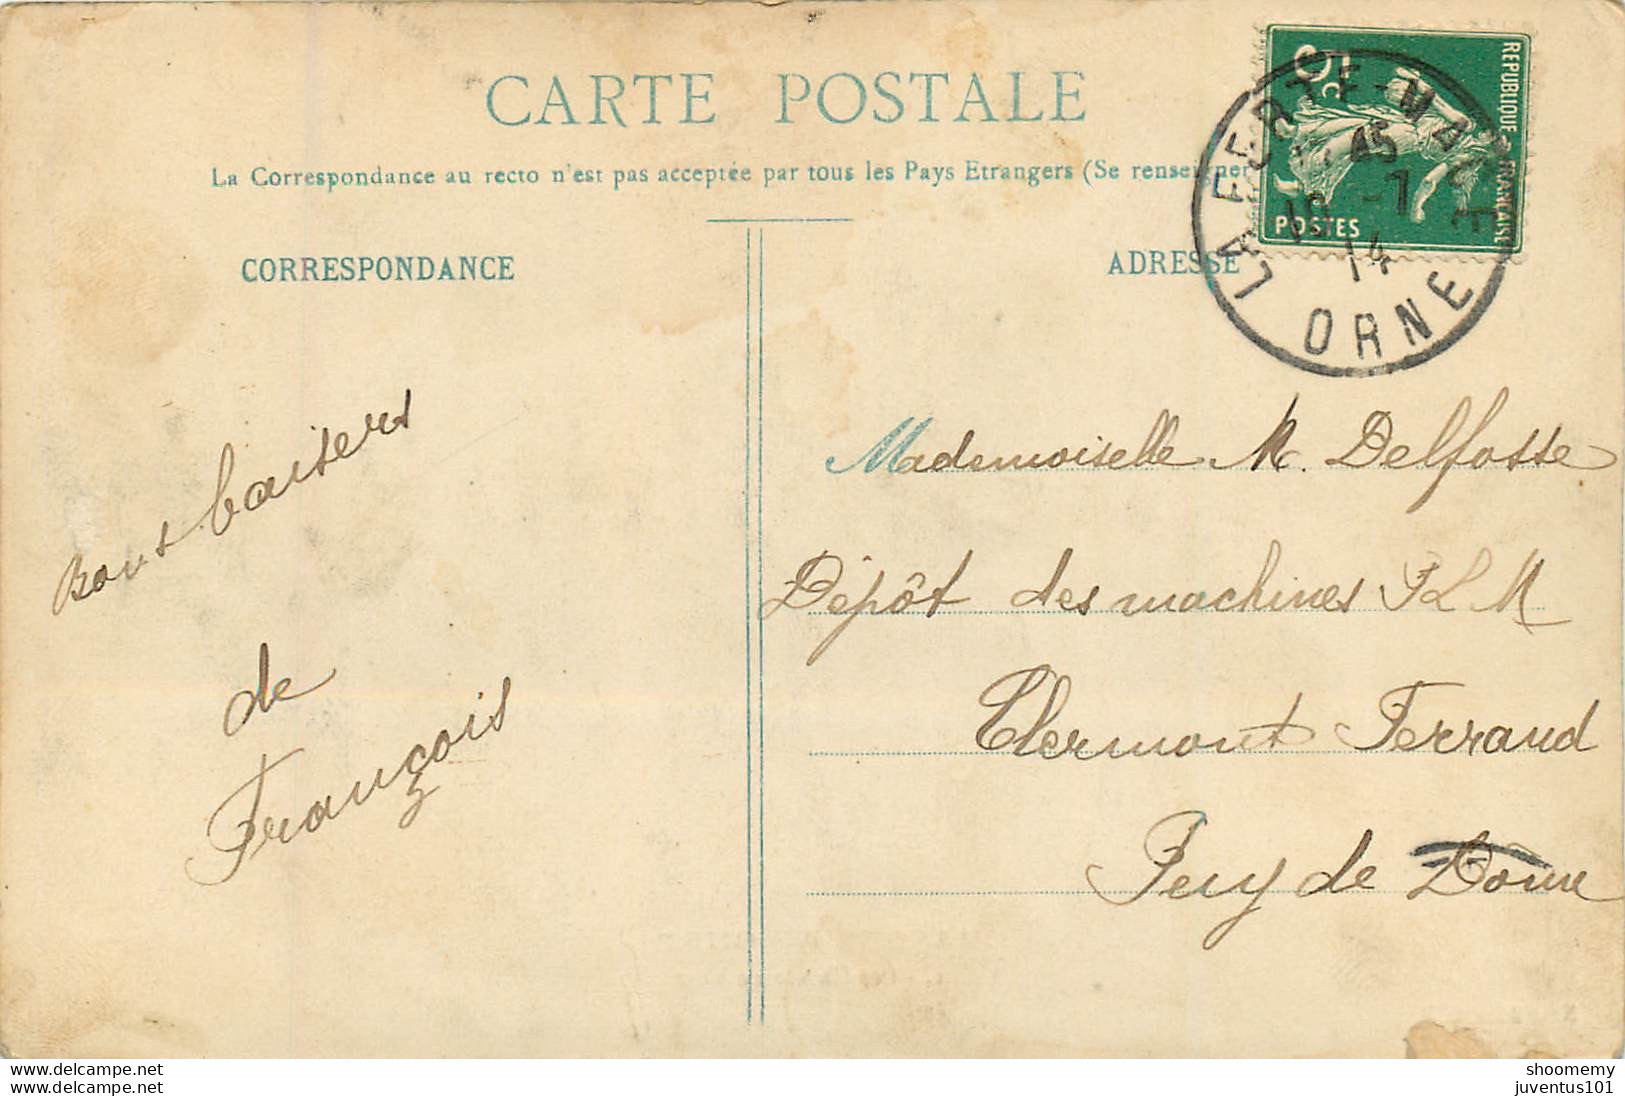 CARTE POSTALE
La Correspondance au recto n'est pas acceptée par tous les Pays Etrangers (Se renseigner
CORRESPONDANCE
ADRESSE
REPUBLIQUE FRANÇAISE
5c
POSTES
LA FERTE-MACE
45
-1
14
ORNE
Bons baisers
de
François
Mademoiselle M. Delfosse
Dépôt des machines P L M
Clermont Ferrand
Puy de Dome
delcampe.net
shoomemy
juventus101